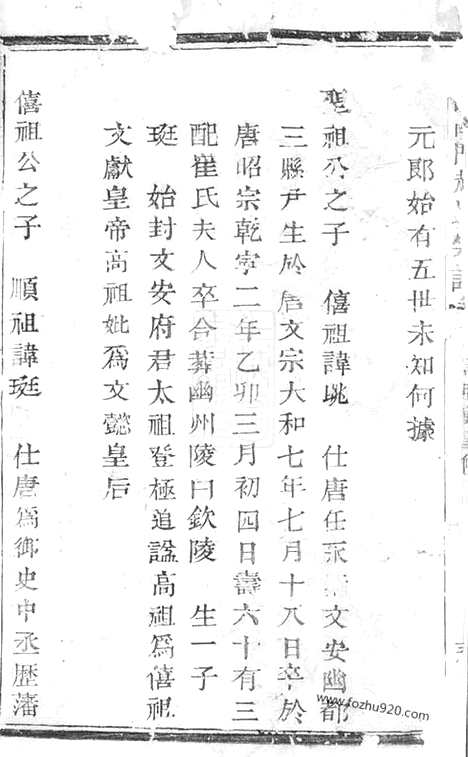 元郎始有五世未知何據
聖祖公之子 僖祖諱眺 仕唐任永 文安幽都
三縣尹生於唐文宗大和七年七月十八日卒於
唐昭宗乾寧二年乙卯三月初四日壽六十有三
配崔氏夫人卒合葬幽州陵曰欽陵 生一子
珽 始封文安府君太祖登極追諡高祖為僖祖
文獻皇帝高祖妣為文懿皇后
僖祖公之子 順祖諱珽 仕唐為御史中丞歷藩
www.fozhu920.com